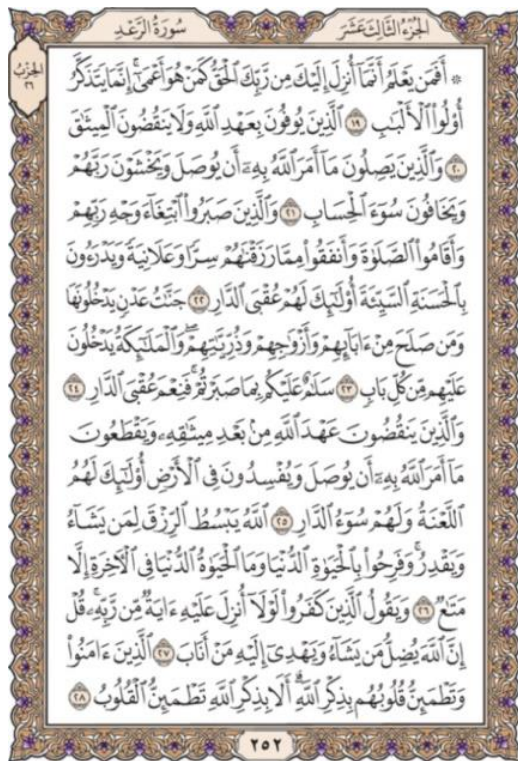 سُورَةُ الرَّعْدِ
الجُزْءُ الثَّالِثَ عَشَرَ
الحِزْبُ
٢٦
۞ أَفَمَن يَعْلَمُ أَنَّمَآ أُنزِلَ إِلَيْكَ مِن رَّبِّكَ ٱلْحَقُّ كَمَنْ هُوَ أَعْمَىٰٓۚ إِنَّمَا يَتَذَكَّرُ
أُو۟لُوا۟ ٱلْأَلْبَٰبِ ١٩ ٱلَّذِينَ يُوفُونَ بِعَهْدِ ٱللَّهِ وَلَا يَنقُضُونَ ٱلْمِيثَٰقَ
٢٠ وَٱلَّذِينَ يَصِلُونَ مَآ أَمَرَ ٱللَّهُ بِهِۦٓ أَن يُوصَلَ وَيَخْشَوْنَ رَبَّهُمْ
وَيَخَافُونَ سُوٓءَ ٱلْحِسَابِ ٢١ وَٱلَّذِينَ صَبَرُوا۟ ٱبْتِغَآءَ وَجْهِ رَبِّهِمْ
وَأَقَامُوا۟ ٱلصَّلَوٰةَ وَأَنفَقُوا۟ مِمَّا رَزَقْنَٰهُمْ سِرًّا وَعَلَانِيَةً وَيَدْرَءُونَ
بِٱلْحَسَنَةِ ٱلسَّيِّئَةَ أُو۟لَٰٓئِكَ لَهُمْ عُقْبَى ٱلدَّارِ ٢٢ جَنَّٰتُ عَدْنٍ يَدْخُلُونَهَا
وَمَن صَلَحَ مِنْ ءَابَآئِهِمْ وَأَزْوَٰجِهِمْ وَذُرِّيَّٰتِهِمْۖ وَٱلْمَلَٰٓئِكَةُ يَدْخُلُونَ
عَلَيْهِم مِّن كُلِّ بَابٍ ٢٣ سَلَٰمٌ عَلَيْكُم بِمَا صَبَرْتُمْۚ فَنِعْمَ عُقْبَى ٱلدَّارِ ٢٤
وَٱلَّذِينَ يَنقُضُونَ عَهْدَ ٱللَّهِ مِنۢ بَعْدِ مِيثَٰقِهِۦ وَيَقْطَعُونَ
مَآ أَمَرَ ٱللَّهُ بِهِۦٓ أَن يُوصَلَ وَيُفْسِدُونَ فِى ٱلْأَرْضِ أُو۟لَٰٓئِكَ لَهُمُ
ٱللَّعْنَةُ وَلَهُمْ سُوٓءُ ٱلدَّارِ ٢٥ ٱللَّهُ يَبْسُطُ ٱلرِّزْقَ لِمَن يَشَآءُ
وَيَقْدِرُۚ وَفَرِحُوا۟ بِٱلْحَيَوٰةِ ٱلدُّنْيَا وَمَا ٱلْحَيَوٰةُ ٱلدُّنْيَا فِى ٱلْءَاخِرَةِ إِلَّا
مَتَٰعٌ ٢٦ وَيَقُولُ ٱلَّذِينَ كَفَرُوا۟ لَوْلَآ أُنزِلَ عَلَيْهِ ءَايَةٌ مِّن رَّبِّهِۦۚ قُلْ
إِنَّ ٱللَّهَ يُضِلُّ مَن يَشَآءُ وَيَهْدِىٓ إِلَيْهِ مَنْ أَنَابَ ٢٧ ٱلَّذِينَ ءَامَنُوا۟
وَتَطْمَئِنُّ قُلُوبُهُم بِذِكْرِ ٱللَّهِۗ أَلَا بِذِكْرِ ٱللَّهِ تَطْمَئِنُّ ٱلْقُلُوبُ ٢٨
٢٥٢